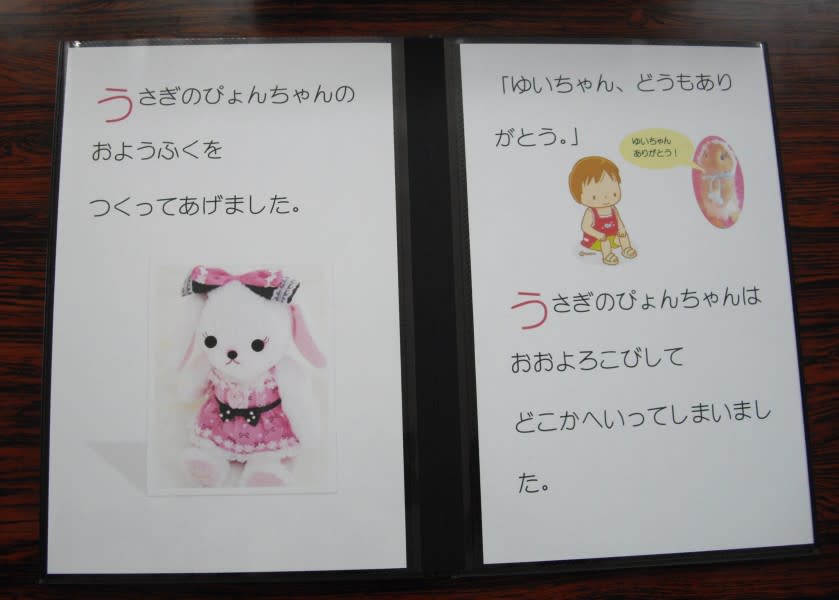 うさぎのぴょんちゃんの
おようふくを
つくってあげました。
「ゆいちゃん、どうもあり
がとう。」
ゆいちゃん
ありがとう！
うさぎのぴょんちゃんは
おおよろこびして
どこかへいってしまいまし
た。